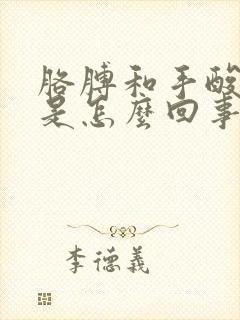 胳膊和手酸
是怎麼回事
李德義